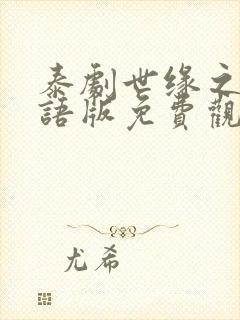 泰劇世缘之
語版免費觀
尤希